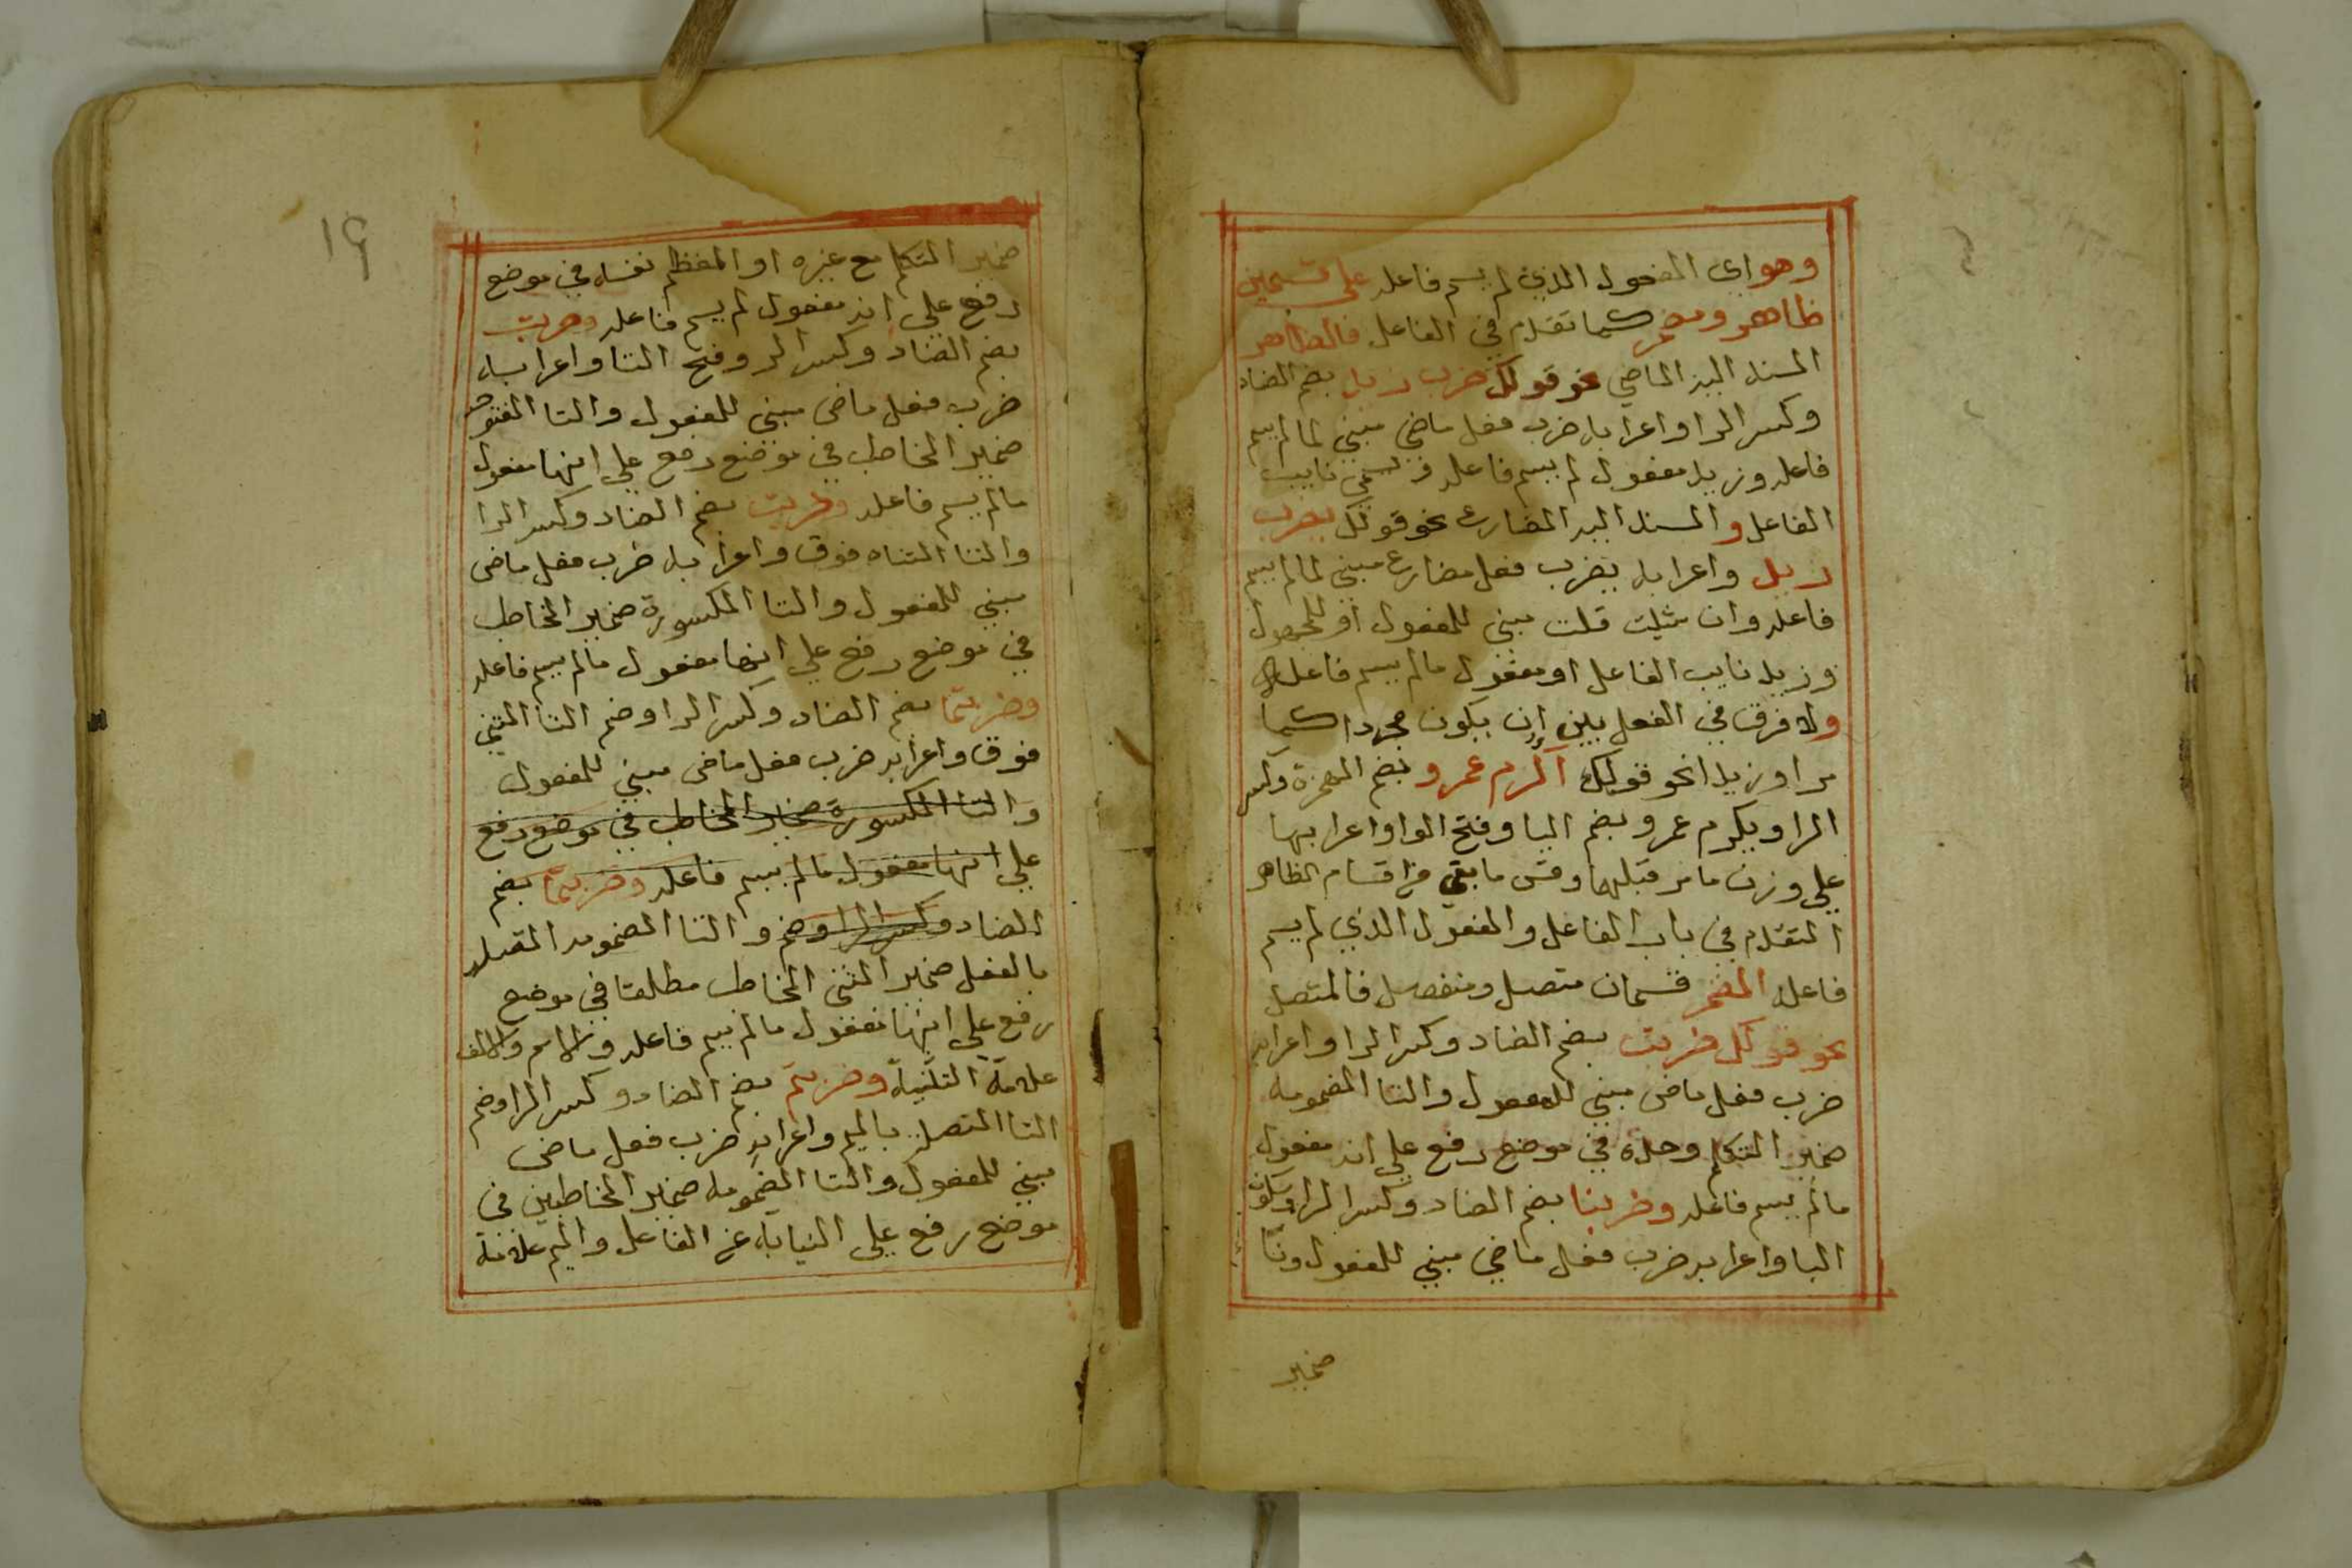 وهو اي المفعول الذي لم يسم فاعله علي قسمين
ظاهر ومضمر كما تقدم في الفاعل فالظاهر
المسند اليه الماضي نحو قولك ضرب زيد بضم الضاد
وكسر الرا واعرابه ضرب فعل ماضي مبني لما لم يسم
فاعله وزيد مفعول لم يسم فاعله ويسمي نايب
الفاعل والمسند اليه المضارع نحو قولك يضرب
زيد واعرابه يضرب فعل مضارع مبني لما لم يسم
فاعله وان شيت قلت مبني للمفعول او للمجهول
وزيد نايب الفاعل او مفعول مالم يسم فاعله
ولا فرق في الفعل بين ان يكون مجردا كما
مر او زيدا نحو قولك اكرم عمرو بضم الهمزة وكسر
الرا ويكرم عمرو بضم اليا وفتح الرا واعرابها
علي وزن ما مر قبلهما وقس ما بقي من اقسام الظاهر
المتقدم في باب الفاعل والمفعول الذي لم يسم
فاعله المضمر قسمان متصل ومنفصل فالمتصل
نحو قولك ضربت بضم الضاد وكسر الرا واعرابه
ضرب فعل ماضي مبني للمفعول والتا المضمومه
ضمير المتكلم وحده في موضع رفع علي انه مفعول
مالم يسم فاعله وضربنا بضم الضاد وكسر الرا وسكون
البا واعرابه ضرب فعل ماضي مبني للمفعول ونا
ضمير
١٩
ضمير المتكلم مع غيره او المعظم نفسه في موضع
رفع علي انه مفعول لم يسم فاعله وضربت
بضم الضاد وكسر الر وفتح التا واعرابه
ضرب فعل ماضي مبني للمفعول والتا المفتوحه
ضمير المخاطب في موضع رفع علي انها مفعول
مالم يسم فاعله وضربت بضم الضاد وكسر الرا
والتا المتناه فوق واعرابه ضرب فعل ماضي
مبني للمفعول والتا المكسورة ضمير المخاطب
في موضع رفع علي انها مفعول مالم يسم فاعله
وضربتما بضم الضاد وكسر الرا وضم التا المثني
فوق واعرابه ضرب فعل ماضي مبني للمفعول
والتا المكسورة ضمير المخاطب في موضع رفع
علي انها مفعول مالم يسم فاعله وضربتما بضم
الضاد وكسر الرا وضم والتا المضمومه المتصله
بالفعل ضمير المثني المخاطب مطلقا في موضع
رفع علي انها مفعول مالم يسم فاعله والالف
علامة التثنية وضربتم بضم الضاد وكسر الرا وضم
التا المتصلة بالميم واعرابه ضرب فعل ماضي
مبني للمفعول والتا المضمومه ضمير المخاطبين في
موضع رفع علي النيابة عن الفاعل والميم علامة